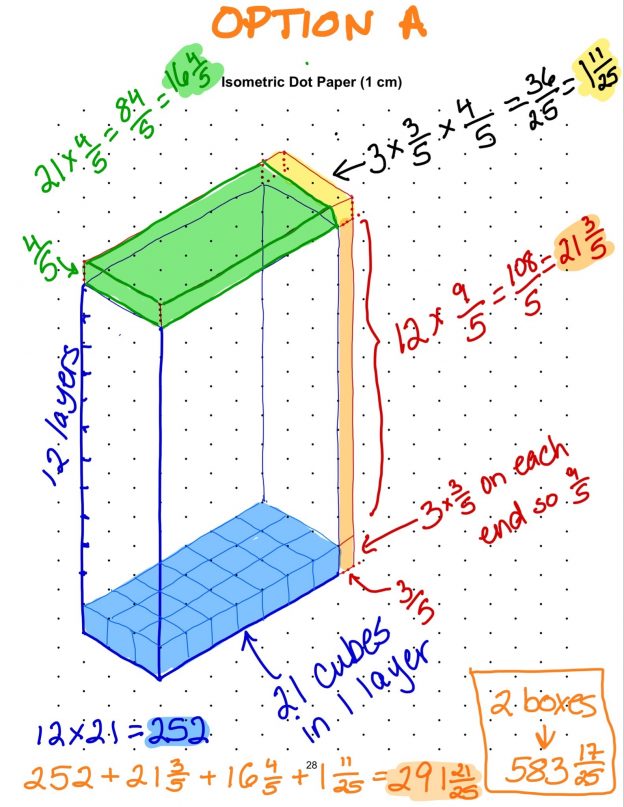 OPTION A
Isometric Dot Paper (1 cm)
21 × 4/5 = 84/5 = 16 4/5
3 × 3/5 × 4/5 = 36/25 = 1 11/25
4/5
12 × 9/5 = 108/5 = 21 3/5
12 layers
3 × 3/5 on each
end so 9/5
3/5
21 cubes
in 1 layer
12×21 = 252
2 boxes
583 17/25
28
252 + 21 3/5 + 16 4/5 + 1 11/25 = 291 21/25